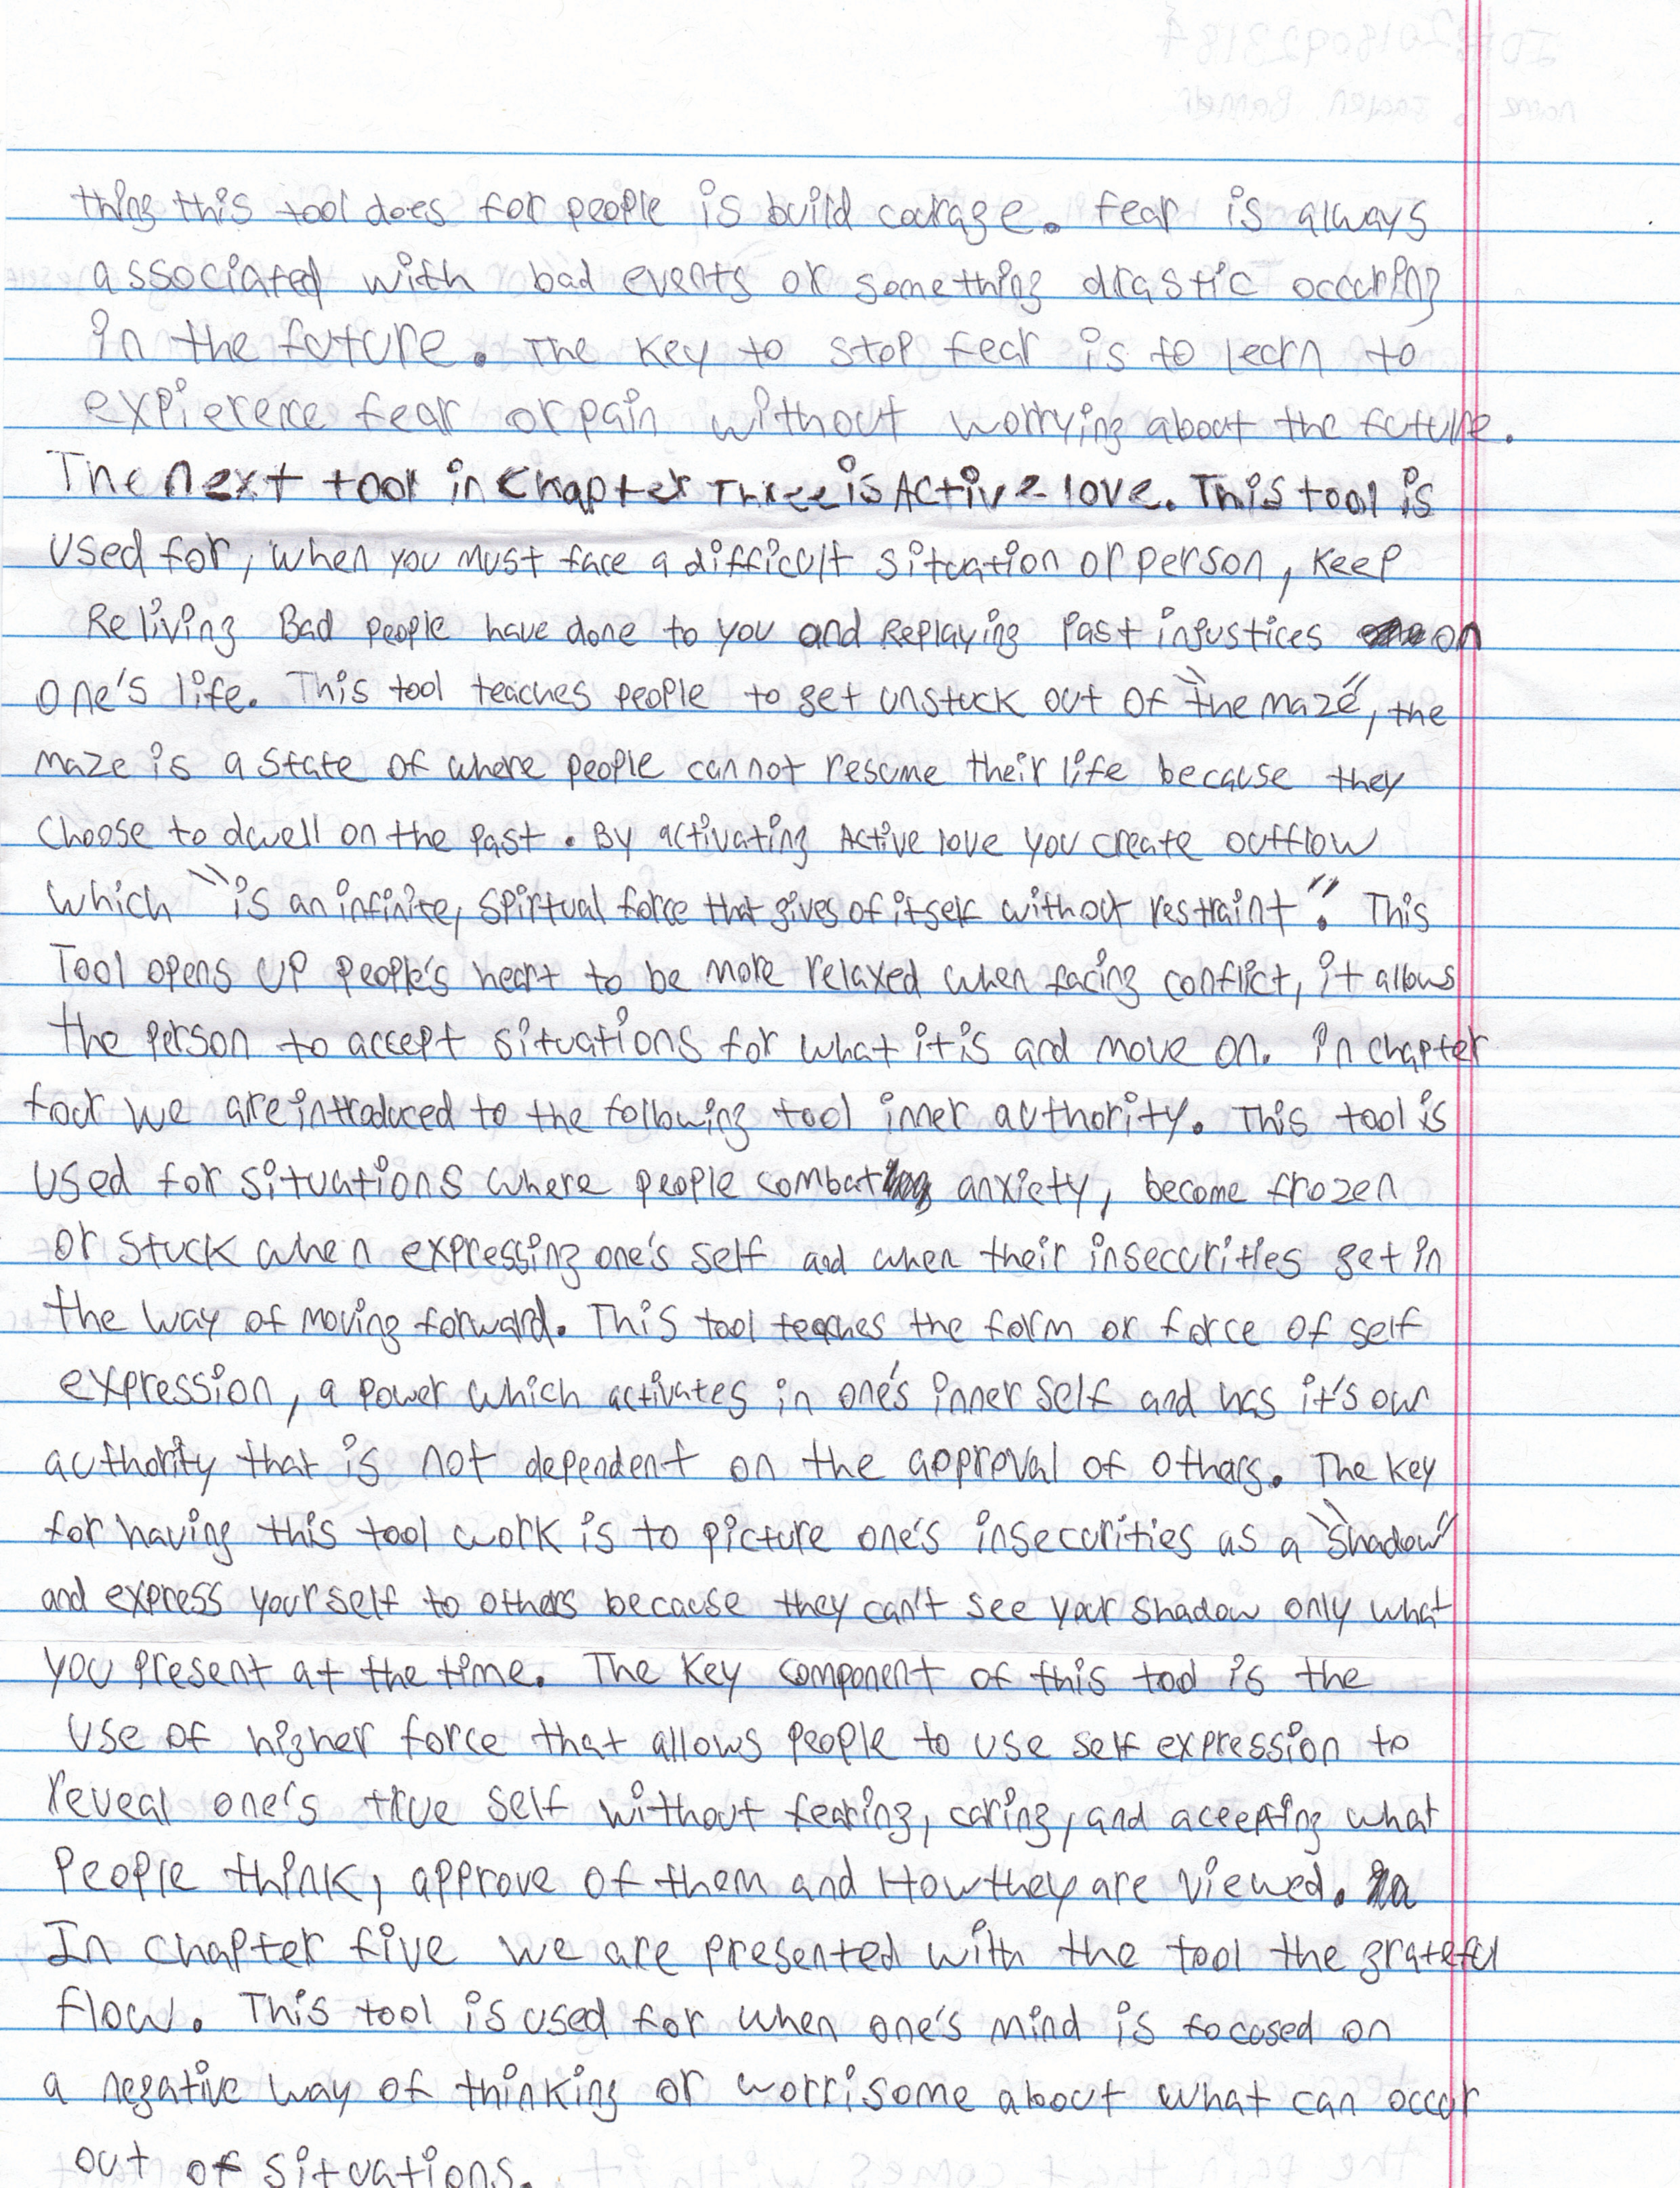 thing this tool does for people is build courage. fear is always
associated with bad events or something drastic occuring
in the future. The key to stop fear is to learn to
expierence fear or pain without worrying about the future.
The next tool in Chapter Three is Active love. This tool is
used for, when you must face a difficult situation or person, keep
Reliving Bad people have done to you and Replaying Past injustices on
one's life. This tool teaches people to get unstuck out of "the maze", the
maze is a state of where people cannot resume their life because they
choose to dwell on the past. By activating Active love you create outflow
which "is an infinite, spirtual force that gives of itself without restraint". This
Tool opens up people's heart to be more relaxed when facing conflict, it allows
the person to accept situations for what it is and move on. in chapter
four we are introduced to the following tool inner authority. This tool is
used for situations where people combat anxiety, become frozen
or stuck when expressing one's self and when their insecurities get in
the way of moving forward. This tool teaches the form or force of self
expression, a power which activates in one's inner self and has it's own
authority that is not dependent on the approval of others. The key
for having this tool work is to picture one's insecurities as a "shadow"
and express yourself to others because they can't see your shadow only what
you present at the time. The key component of this tool is the
use of higher force that allows people to use self expression to
reveal one's true self without fearing, caring, and accepting what
people think, approve of them and How they are viewed.
In chapter five we are presented with the tool the grateful
flow. This tool is used for when one's mind is focused on
a negative way of thinking or worrisome about what can occur
out of situations.